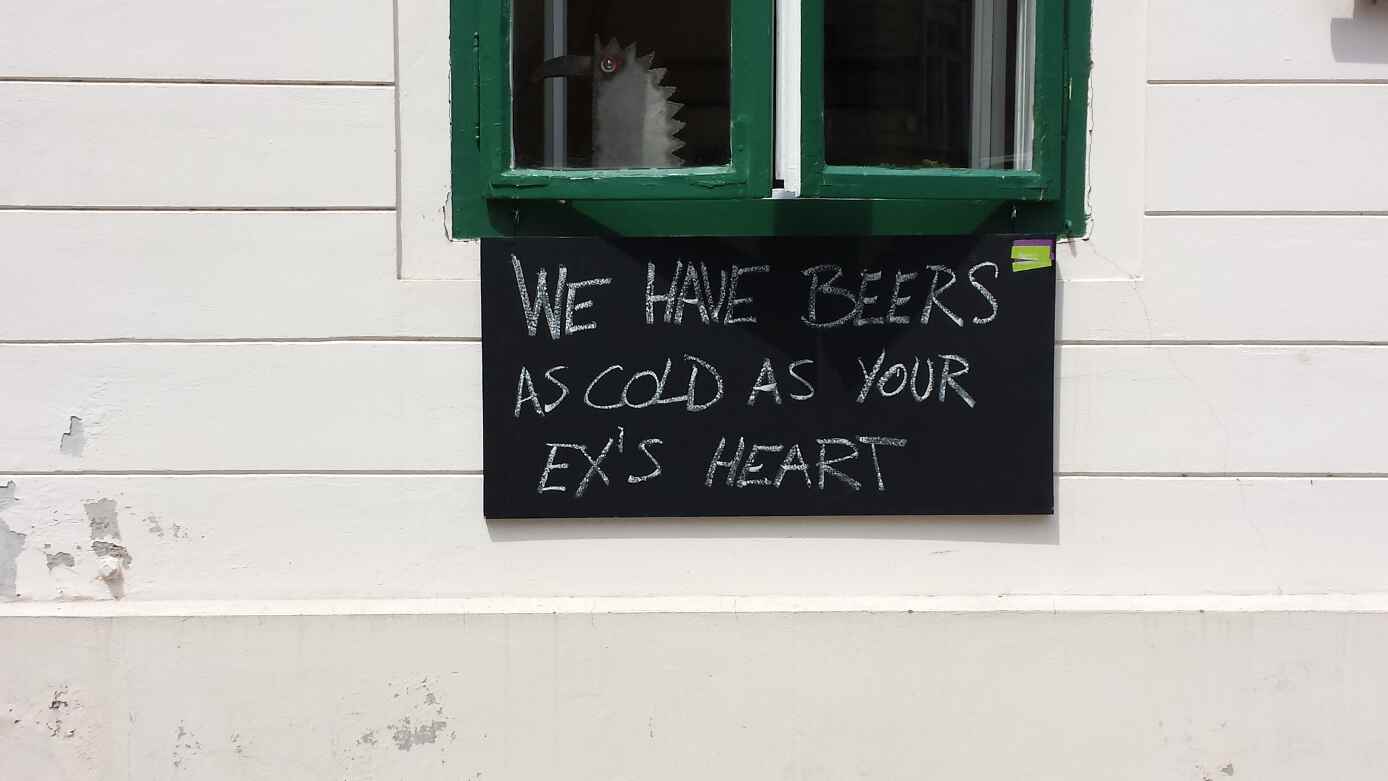 WE HAVE BEERS
AS COLD AS YOUR
EX'S HEART